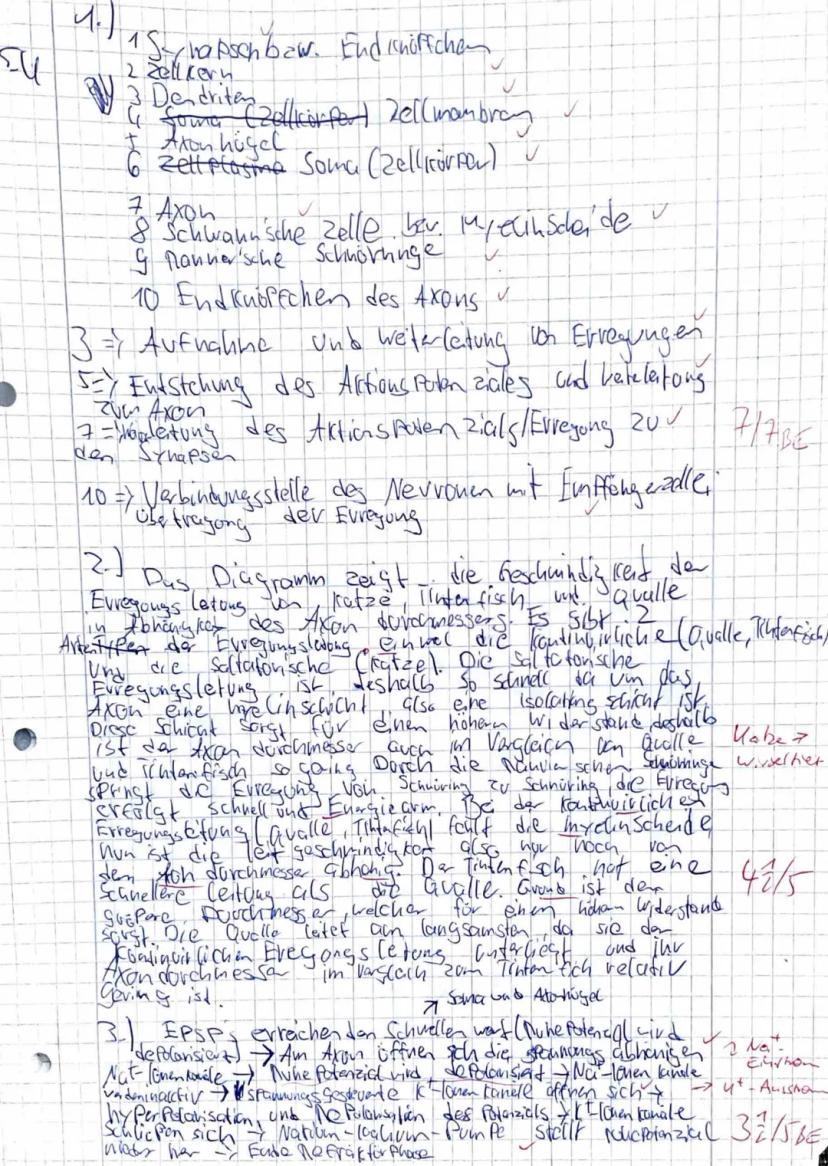 1.)
1 Synapsen bzw. Endknöpfchen
2 Zellkern
3 Dendriten
4 Soma (Zellkörper) Zellmembran
5 Axonhügel
6 Zellplasma Soma (Zellkörper)
7 Axon
8 Schwann'sche Zelle bzw. Myelinscheide
9 Rannver'sche Schnürringe
10 Endknöpfchen des Axons
3 => Aufnahme und Weiterleitung von Erregungen
5 => Entstehung des Aktionspotenziales und
zum Axon
7 => des Aktionspotenzials/Erregung zu
den Synapsen
7/7 BE
10 => Verbindungsstelle des Neuronen mit Empfängerzelle;
Übertragung der Erregung
2.) Das Diagramm zeigt die Geschwindigkeit der
Erregungsleitung von Katze, Tintenfisch und Qualle
in Abhängkeit des Axon durchmessers. Es gibt 2
Arten der Erregungsleitung, einmal die kontinuirliche (Qualle, Tintenfisch)
und die Saltatorische (Katze). Die Saltatorische
Erregungsleitung ist deshalb so schnell da um das
Axon eine Myelinschicht, also eine Isolationsschicht ist.
Diese Schicht sorgt für einen höhern Widerstand, deshalb
ist der Axon durchmesser auch im Vergleich von Qualle
Katze →
und Tintenfisch so gering. Durch die Schnürringe
Wirbeltier
springt die Erregung von Schnüring zu Schnüring, die Erregung
erfolgt schnell und Energiearm. Bei der kontinuirlichen
Erregungsleitung (Qualle, Tintenfisch) fehlt die Myelinscheide
nun ist die leitgeschwindigkeit also nur noch von
dem Axon durchmesser abhänig. Der Tintenfisch hat eine
schnellere Leitung als die Qualle. Grund ist der
4 1/2 /5
größere Durchmesser, welcher für einen höhern Widerstand
sorgt. Die Qualle leitet am langsamsten, da sie der
kontinuirlichen Eregungsleitung unterliegt und ihr
Axondurchmesser im Vergleich zum Tintenfisch relativ
gering ist.
Soma und Axonhügel
3.) EPSP's erreichen den Schwellenwert (Ruhepotenzial wird
depolarisiert) → Am Axon öffnen sich die spannungsabhänigen
Na+-Ionenkanäle → Ruhepotenzial wird depolarisiert → Na+-Ionenkanäle
Na+-Einstrom
werden inaktiv → spannungsgesteuerte K+-Ionenkanäle öffnen sich →
→ K+-Ausstrom
Hyperpolarisation und Repolarisation des Potenzials → K+-Ionenkanäle
schließen sich → Natrium-Kalium-Pumpe stellt Ruhepotenzial
3 1/2 /5 BE
wieder her → Ende Refraktärphase